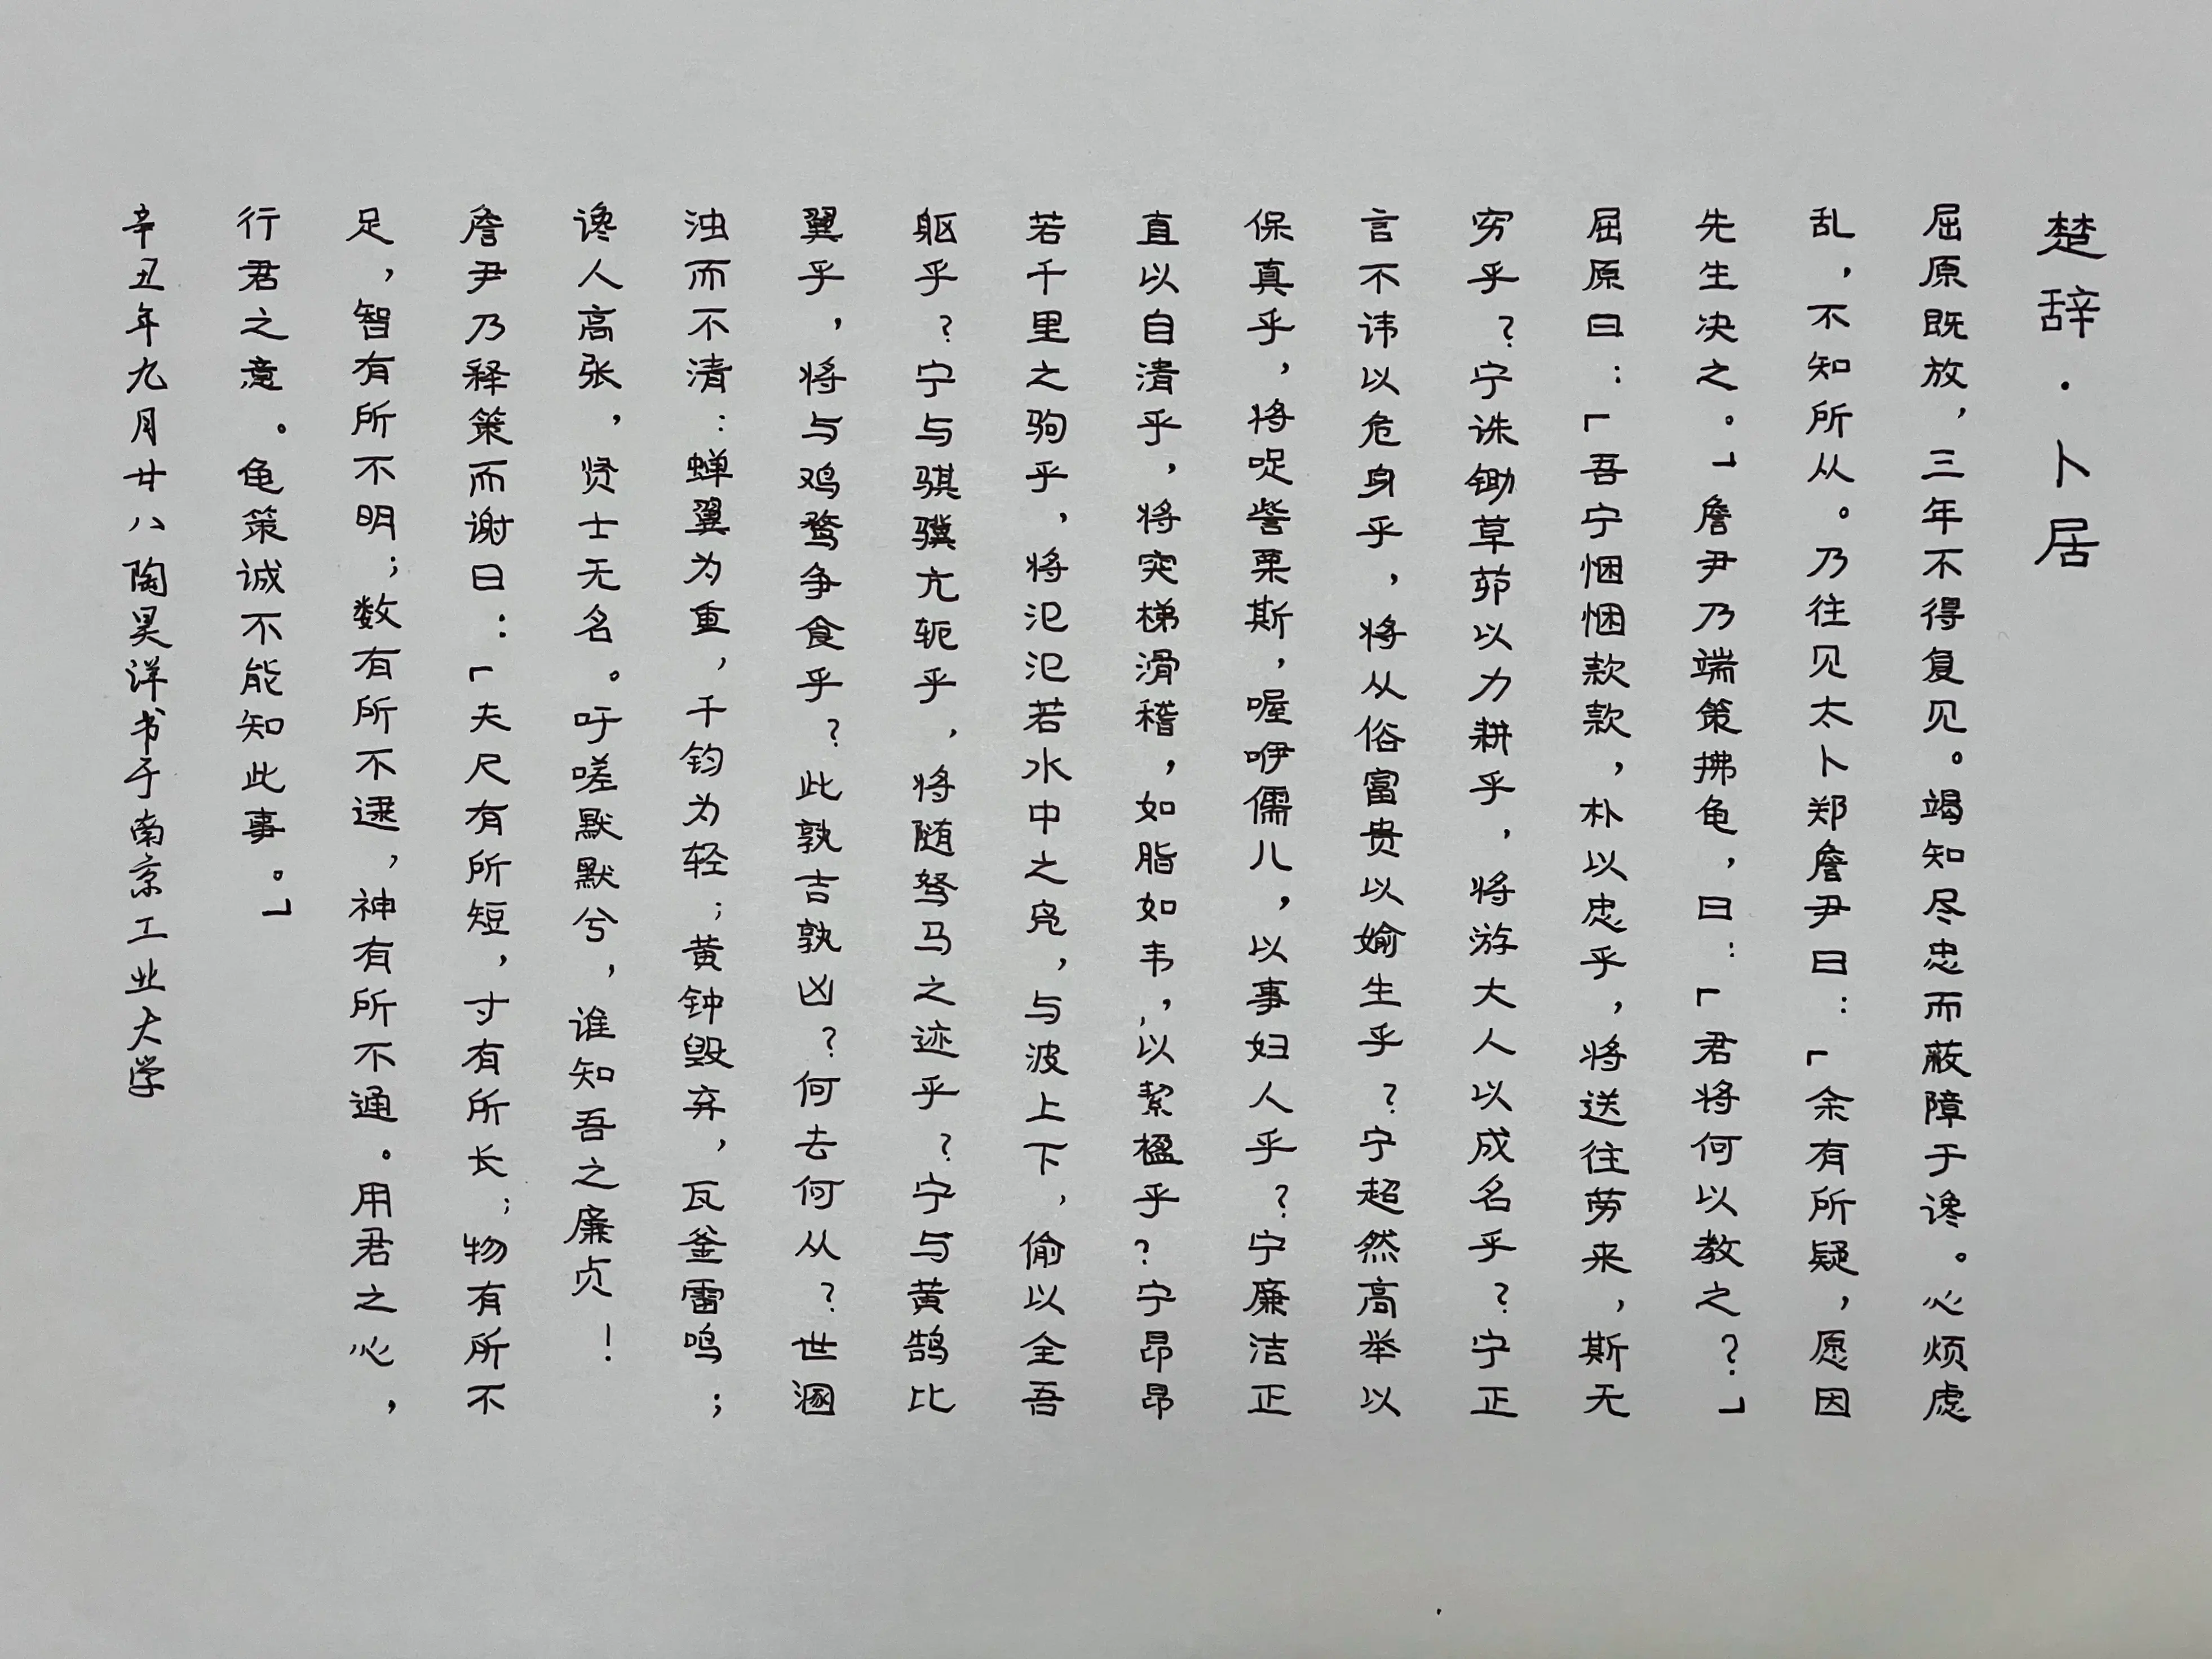 楚辞·卜居
屈原既放，三年不得复见。竭知尽忠而蔽障于谗。心烦虑
乱，不知所从。乃往见太卜郑詹尹曰：「余有所疑，愿因
先生决之。」詹尹乃端策拂龟，曰：「君将何以教之？」
屈原曰：「吾宁悃悃款款，朴以忠乎，将送往劳来，斯无
穷乎？宁诛锄草茆以力耕乎，将游大人以成名乎？宁正
言不讳以危身乎，将从俗富贵以媮生乎？宁超然高举以
保真乎，将哫訾栗斯，喔咿儒儿，以事妇人乎？宁廉洁正
直以自清乎，将突梯滑稽，如脂如韦，以絜楹乎？宁昂昂
若千里之驹乎，将氾氾若水中之凫，与波上下，偷以全吾
躯乎？宁与骐骥亢轭乎，将随驽马之迹乎？宁与黄鹄比
翼乎，将与鸡鹜争食乎？此孰吉孰凶？何去何从？世溷
浊而不清：蝉翼为重，千钧为轻；黄钟毁弃，瓦釜雷鸣；
谗人高张，贤士无名。吁嗟默默兮，谁知吾之廉贞！
詹尹乃释策而谢曰：「夫尺有所短，寸有所长；物有所不
足，智有所不明；数有所不逮，神有所不通。用君之心，
行君之意。龟策诚不能知此事。」
辛丑年九月廿八陶昊洋书于南京工业大学